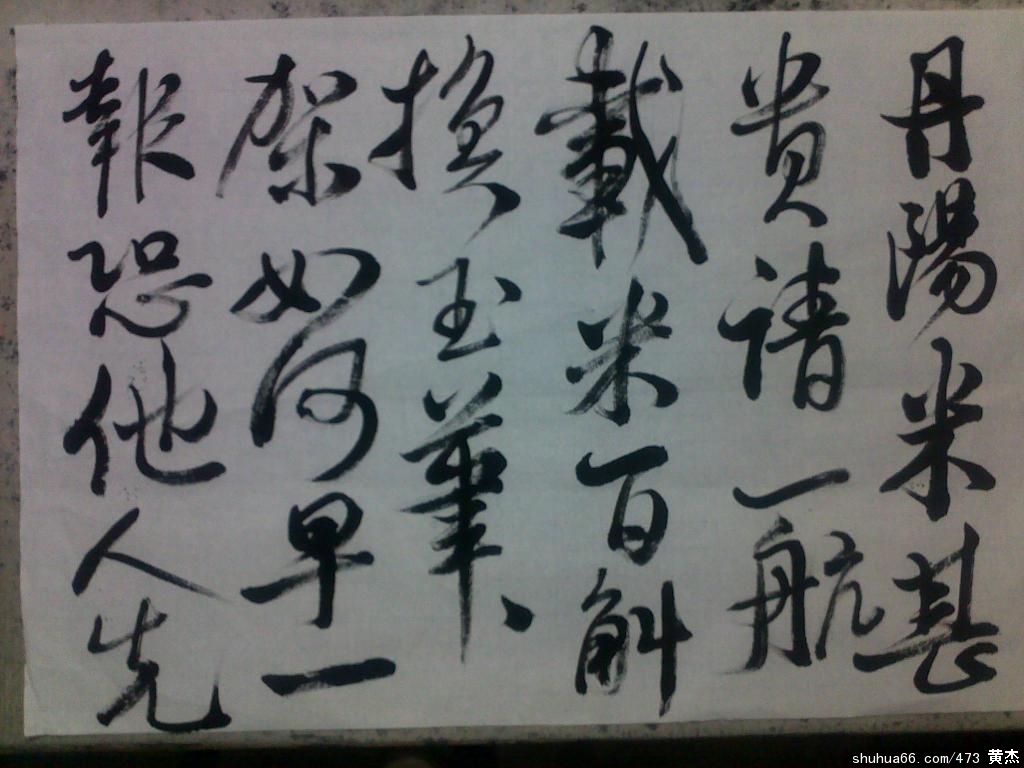 丹陽米甚
貴請一航
載米百斛
換玉筆、
架如何早一
報恐他人先
shuhua66.com/473 黄杰